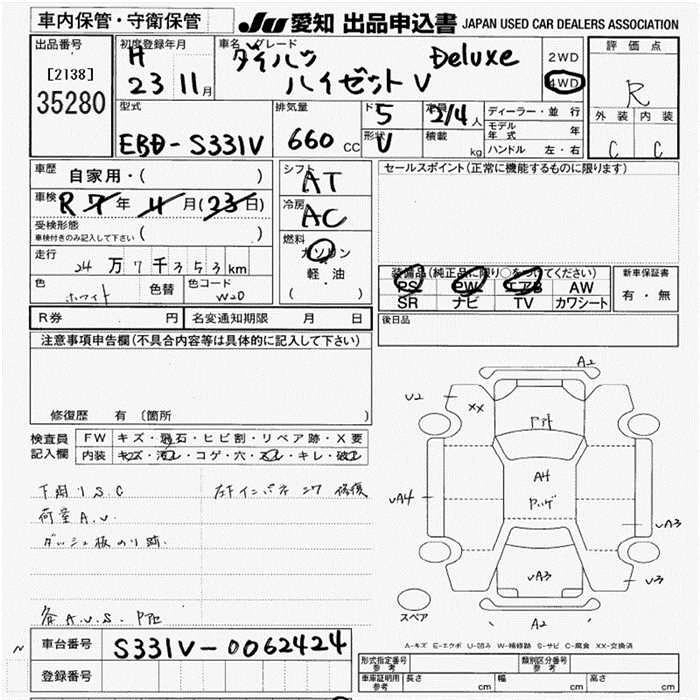 車内保管・守衛保管
JU 愛知 出品申込書 JAPAN USED CAR DEALERS ASSOCIATION
出品番号
[2138]
35280
初度登録年月
H
23 11月
車名 グレード
ダイハツ Deluxe
ハイゼットV
2WD
4WD
評価点
R
外装 内装
C C
型式
EBD-S331V
排気量
660 CC
ド 5
形状 V
定員 2/4 人
積載 kg
ディーラー・並行
モデル年式 年
ハンドル 左・右
車歴
自家用・( )
車検 R7年 11月(23日)
受検形態
車検付きのみ記入して下さい ( )
走行
24万7千353km
色 色替 色コード
ホワイト W20
シフト
AT
冷房
AC
燃料
ガソリン
軽・油
( )
セールスポイント(正常に機能するものに限ります)
装備品(純正品に限り○をつけてください)
PS PW エアB AW
SR ナビ TV カワシート
新車保証書
有・無
R券 円 名変通知期限 月 日
後日品
注意事項申告欄(不具合内容等は具体的に記入して下さい)
修復歴 有 (箇所 )
検査員
記入欄
FW キズ・飛石・ヒビ割・リペア跡・X要
内装 キズ・汚レ・コゲ・穴・スレ・キレ・破レ
下廻りS.C
左F インパネ
修復
荷室A.U.
ダッシュ板のり跡
A2
U2
XX
AH
UA4
UA3
UA3
U3
A2
スペア
A-キズ E-エクボ U-凹み W-補修跡 S-サビ C-腐食 XX-交換済
車台番号 S331V-0062424
登録番号
形式指定番号 参考
類別区分番号 参考
車庫証明用 参考 長さ cm 幅 cm 高さ cm